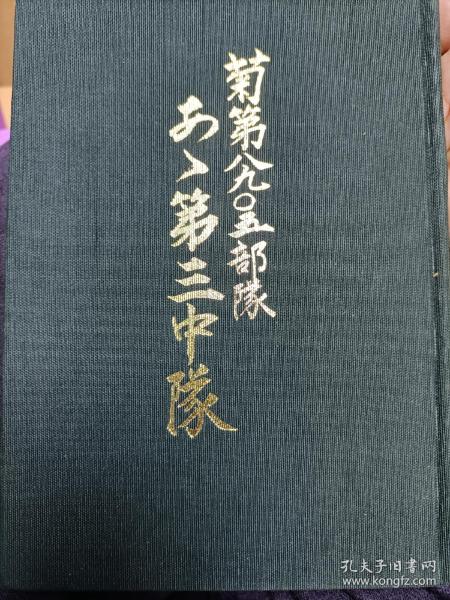 菊第八九〇五部隊
あゝ第三中隊
孔夫子旧书网
www.kongfz.com